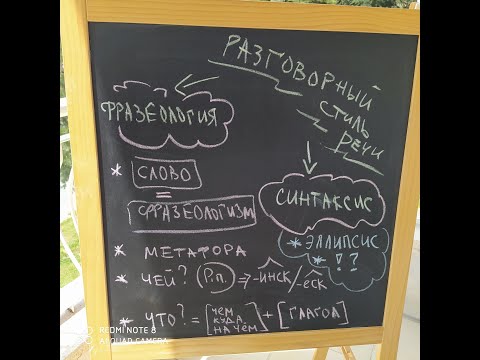 РАЗГОВОРНЫЙ
СТИЛЬ
РЕЧИ
ФРАЗЕОЛОГИЯ
* СЛОВО
=
ФРАЗЕОЛОГИЗМ
* МЕТАФОРА
* ЧЕЙ? Р.п. ⇒ -ИНСК/-ЕСК
* ЧТО? = [ЧЕМ
КУДА
НА ЧЁМ] + [ГЛАГОЛ]
СИНТАКСИС
* ЭЛЛИПСИС
* !?
REDMI NOTE 8
AI QUAD CAMERA